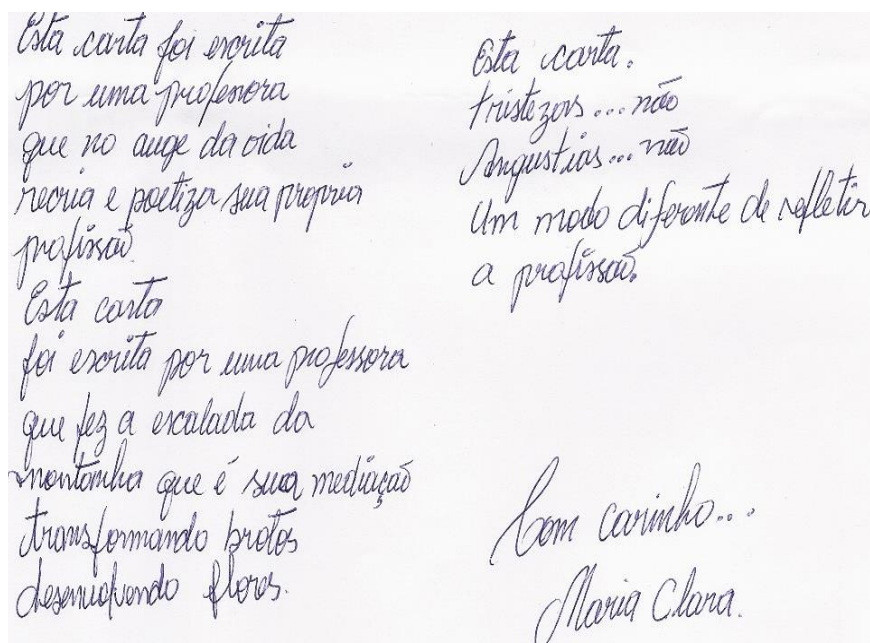 Esta carta foi escrita
por uma professora
que no auge da vida
recria e poetiza sua propria
profissão.
Esta carta
foi escrita por uma professora
que fez a escalada da
montanha que é sua mediação
transformando brotos
desenvolvendo flores.
Esta carta.
tristezas... não
Angustias... não
Um modo diferente de refletir
a profissão.
Com carinho...
Maria Clara.